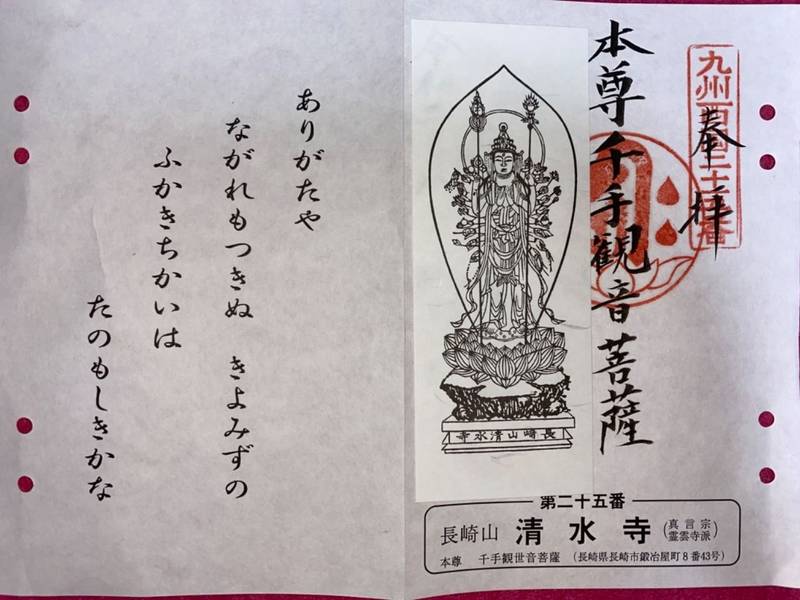 九州西国二十五番
奉拝
本尊千手観音菩薩
長崎山清水寺
第二十五番
長崎山 清水寺 (真言宗
霊雲寺派)
本尊 千手観世音菩薩 (長崎県長崎市鍛冶屋町8番43号)
ありがたや
ながれもつきぬ きよみずの
ふかきちかいは
たのもしきかな